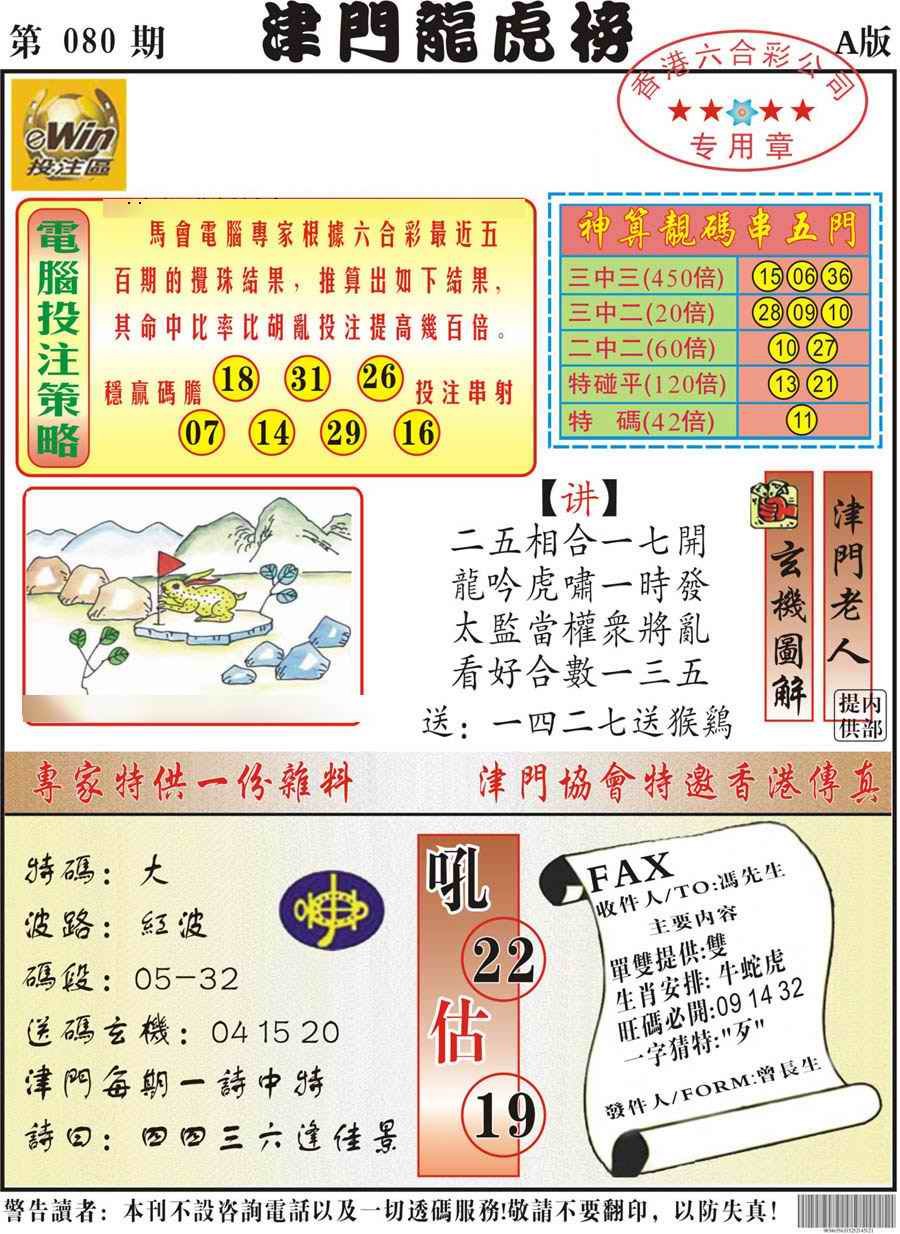 第 080 期
津門龍虎榜
A版
香港六合彩公司
专用章
eWin
投注區
電腦投注策略
馬會電腦專家根據六合彩最近五
百期的攪珠結果，推算出如下結果，
其命中比率比胡亂投注提高幾百倍。
穩贏碼膽 18 31 26 投注串射
07 14 29 16
神算靚碼串五門
三中三(450倍) 15 06 36
三中二(20倍) 28 09 10
二中二(60倍) 10 27
特碰平(120倍) 13 21
特 碼(42倍) 11
【讲】
二五相合一七開
龍吟虎嘯一時發
太監當權衆將亂
看好合數一三五
送：一四二七送猴鷄
玄機圖解
津門老人
提供内部
專家特供一份雜料
津門協會特邀香港傳真
特碼：大
波路：紅波
碼段：05-32
送碼玄機：04 15 20
津門每期一詩中特
詩曰：四四三六逢佳景
吼
22
估
19
FAX
收件人/TO:馮先生
主要内容
單雙提供:雙
生肖安排: 牛蛇虎
旺碼必開:09 14 32
一字猜特:"歹"
發件人/FORM:曾長生
警告讀者：本刊不設咨詢電話以及一切透碼服務!敬請不要翻印，以防失真！